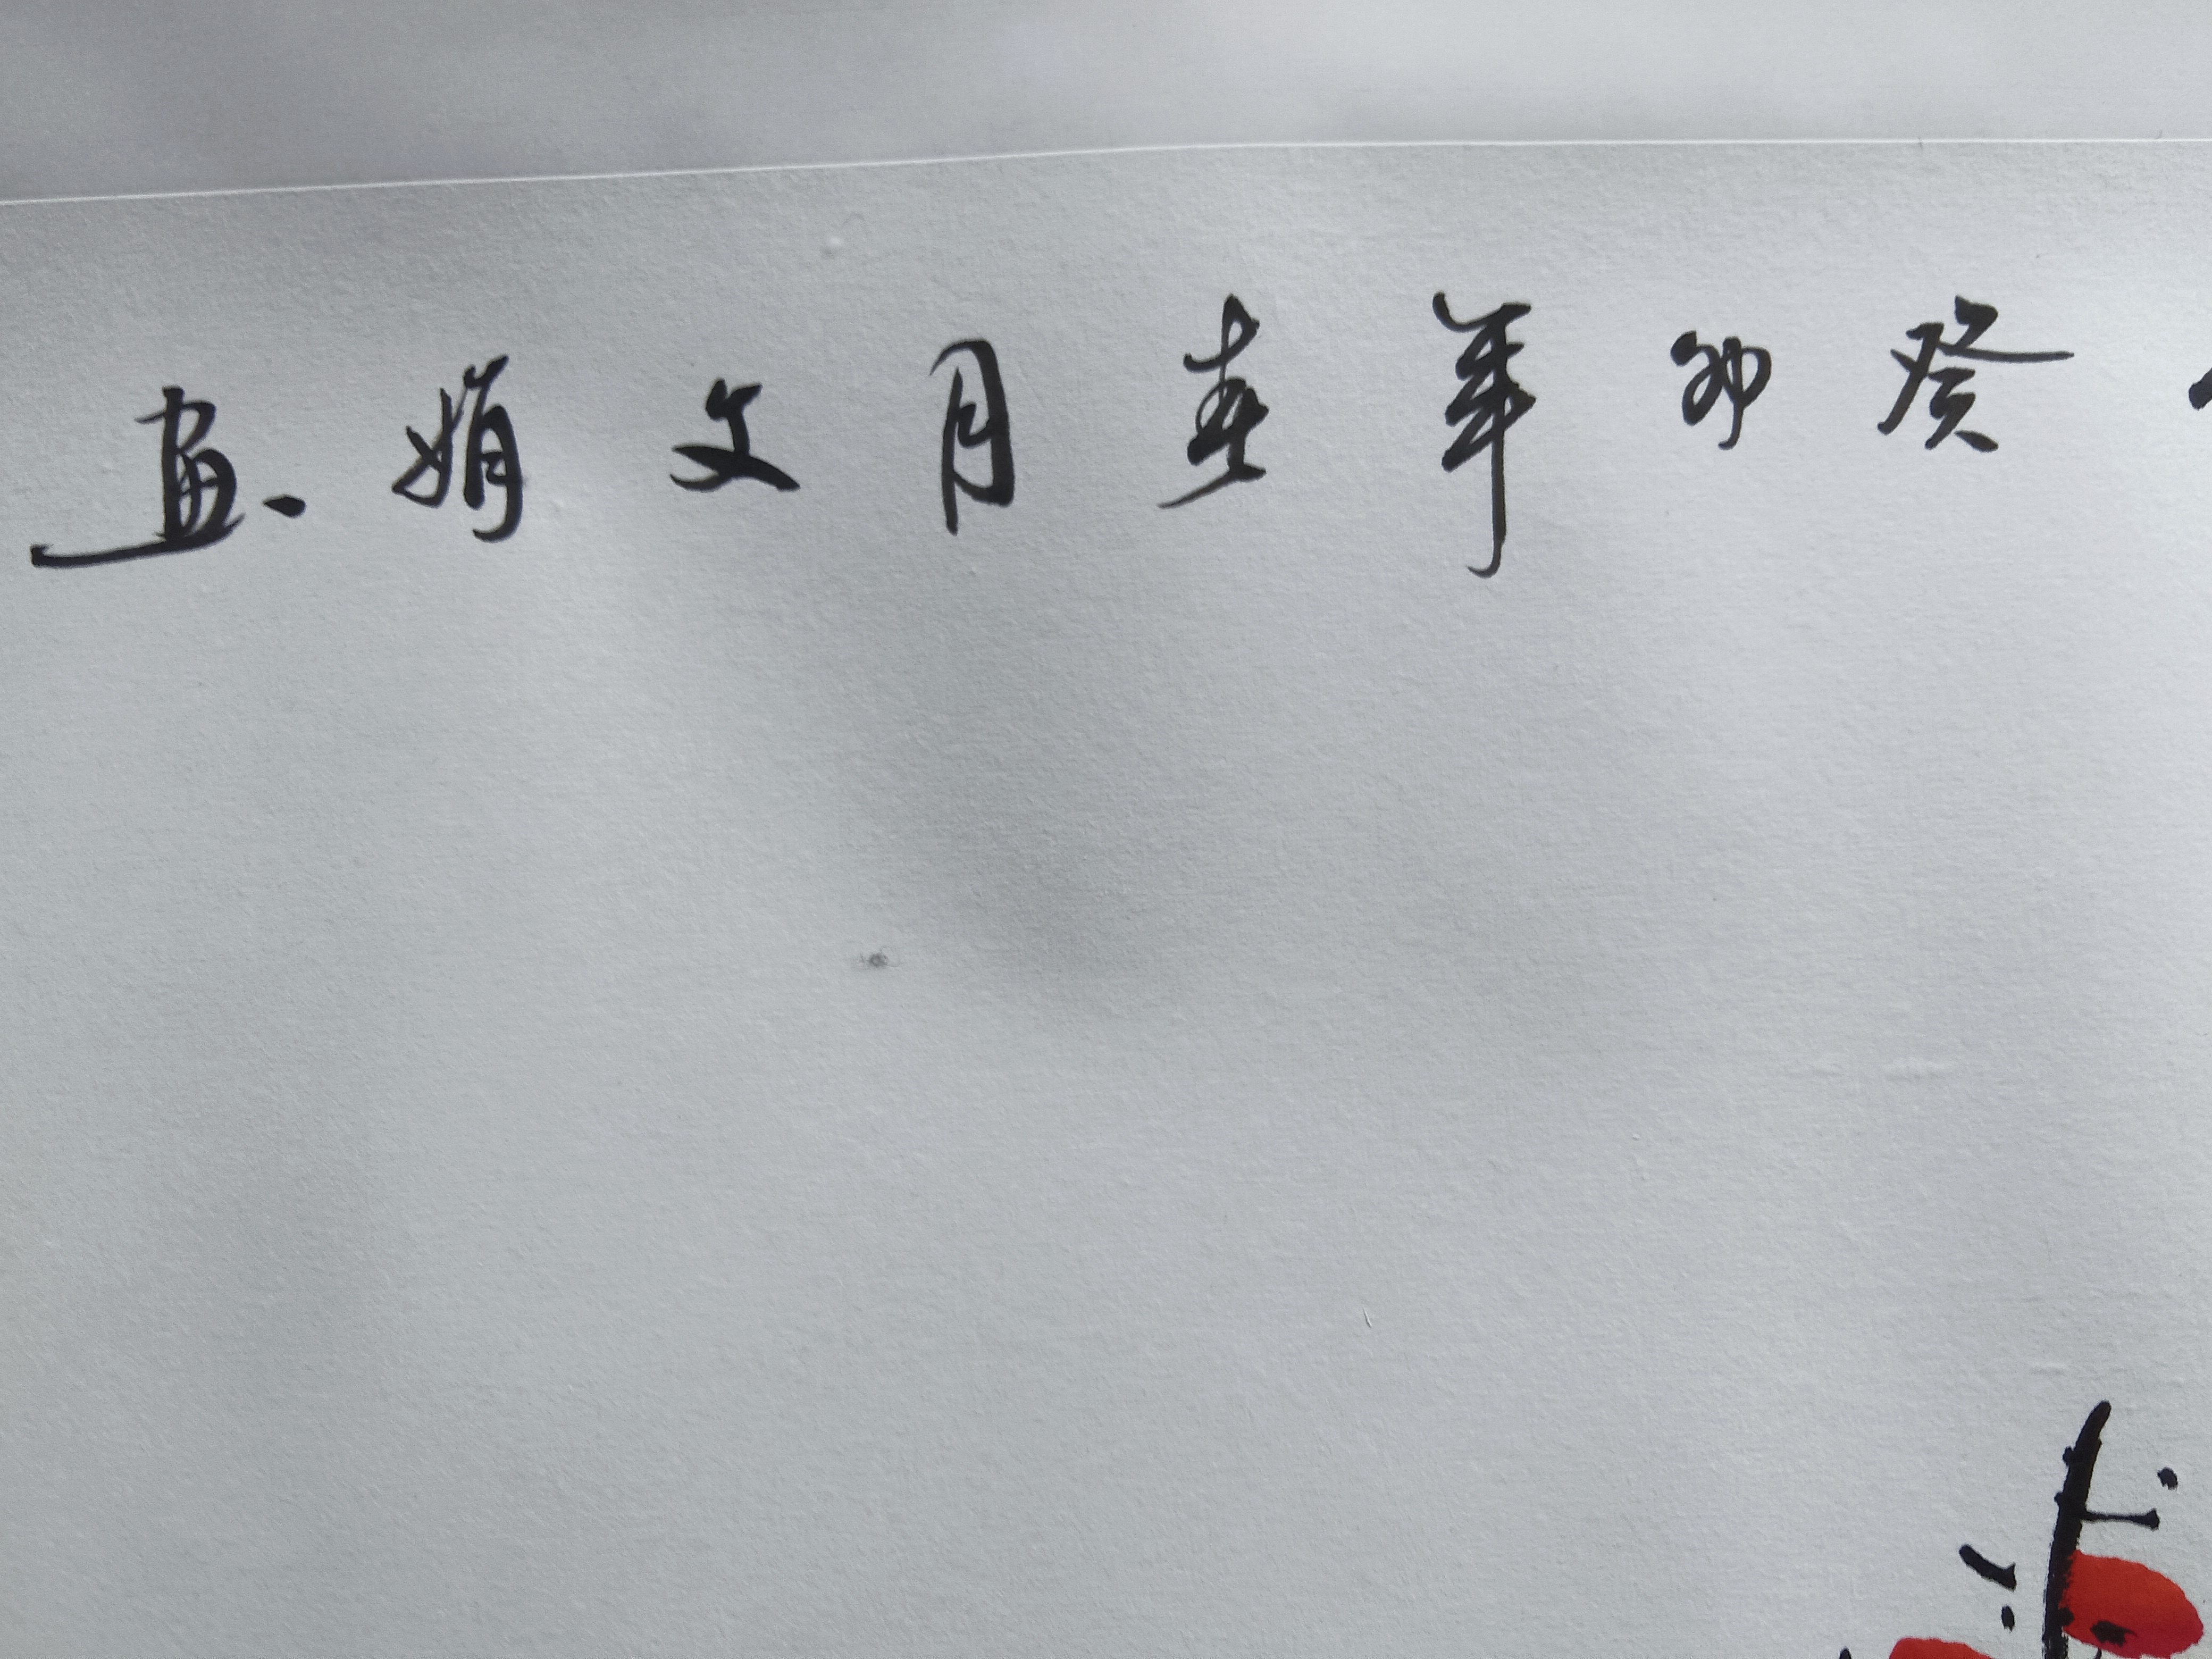 癸卯年春月文娟画